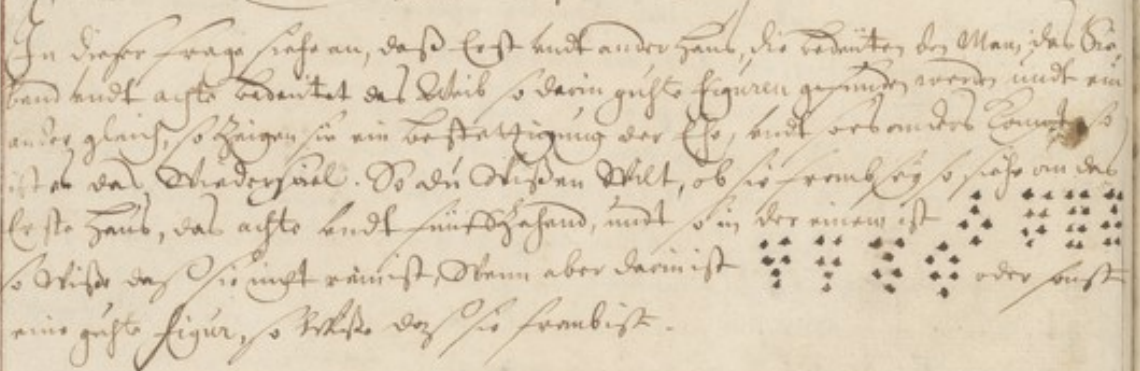 In dieser frage siehe an, daß Erst undt ander Hauß, die bedeuten den Man, das Sie-
bend undt achte bedeutet das Weib so darin guhte Figuren gefunden werden undt ein
ander gleich, so Zeigen sie ein bestettigung der Ehe, undt so es anders Kompt so
ist es das Wiederspiel. So du Wißen Wilt, ob sie fromb sey so siehe an das
Erste Hauß, das achte undt fünffZehend, undt so in der einem ist
so Wiße daß sie nicht rein ist, Wenn aber darin ist oder sonst
eine guhte Figur, so Wiße daß sie fromb ist.